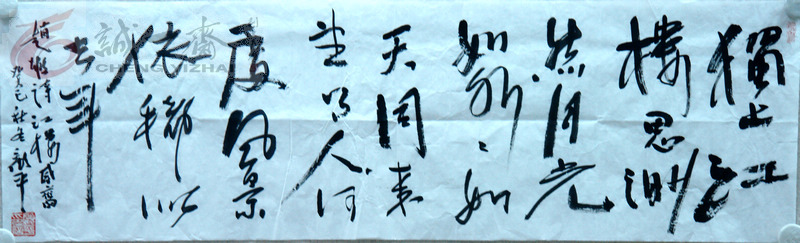 獨上江
樓思渺
然月光
如水々如
天同来
望月人何
處風景
依稀似
去年
趙嘏詩江樓感舊
癸巳秋
誠一齋
CHENGYIZHAI